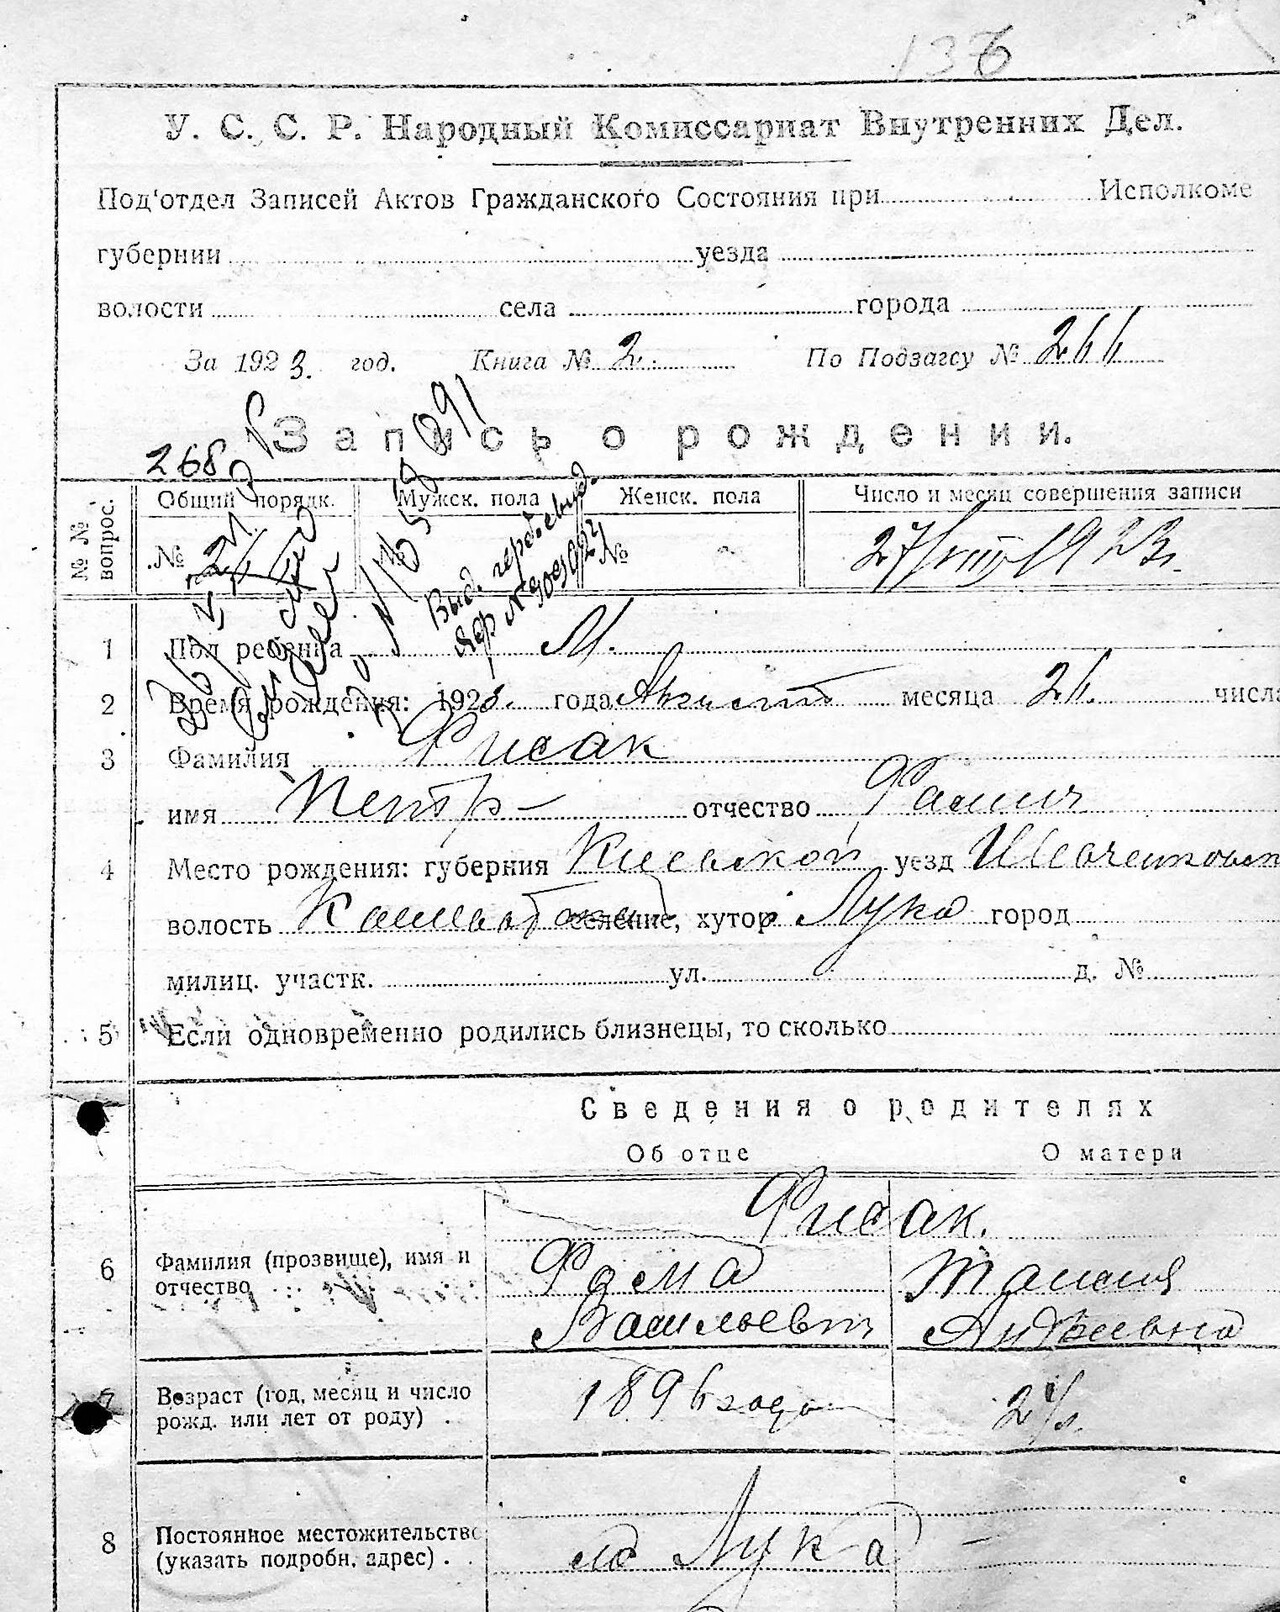 136
У. С. С. Р. Народный Комиссариат Внутренних Дел.
Под'отдел Записей Актов Гражданского Состояния при Исполкоме
губернии уезда
волости села города
За 1923. год. Книга № 2. По Подзагсу № 266
Запись о рождении.
268
№ № вопрос. Общий порядк. Мужск. пола Женск. пола Число и месяц совершения записи
№ № № 27/VIII 1923г.
Выд. герб. свид.
1 Пол ребенка М.
2 Время рождения: 1923. года Август месяца 26. числа
3 Фамилия Фисак
имя Петр отчество Фомич
4 Место рождения: губерния Киевской уезд Шевченковск
волость селение, хутор Лука город
милиц. участк. ул. д. №
5 Если одновременно родились близнецы, то сколько
Сведения о родителях
Об отце О матери
Фисак.
6 Фамилия (прозвище), имя и отчество Фома Васильевич
7 Возраст (год, месяц и число рожд. или лет от роду) . 1896 года
8 Постоянное местожительство (указать подробн. адрес) . . Лука